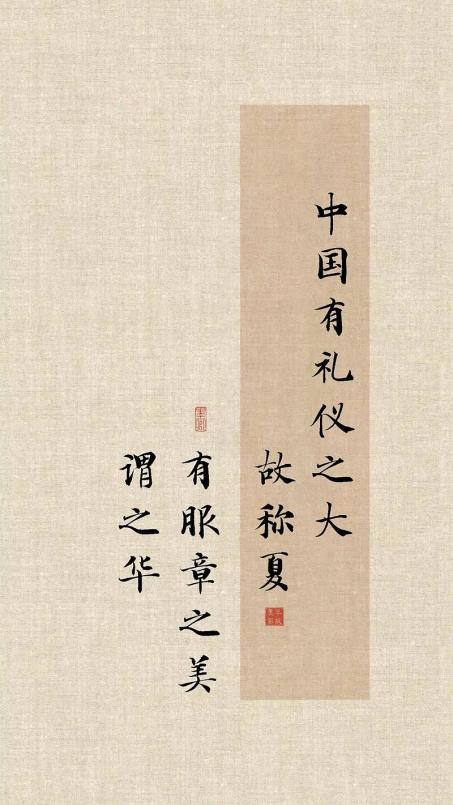 中国有礼仪之大
故称夏
有服章之美
谓之华